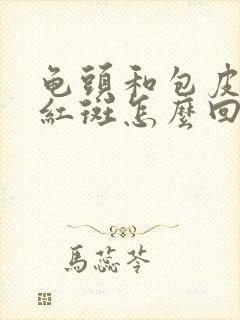 龟頭和包皮
紅斑怎麼回
馬蕊苓